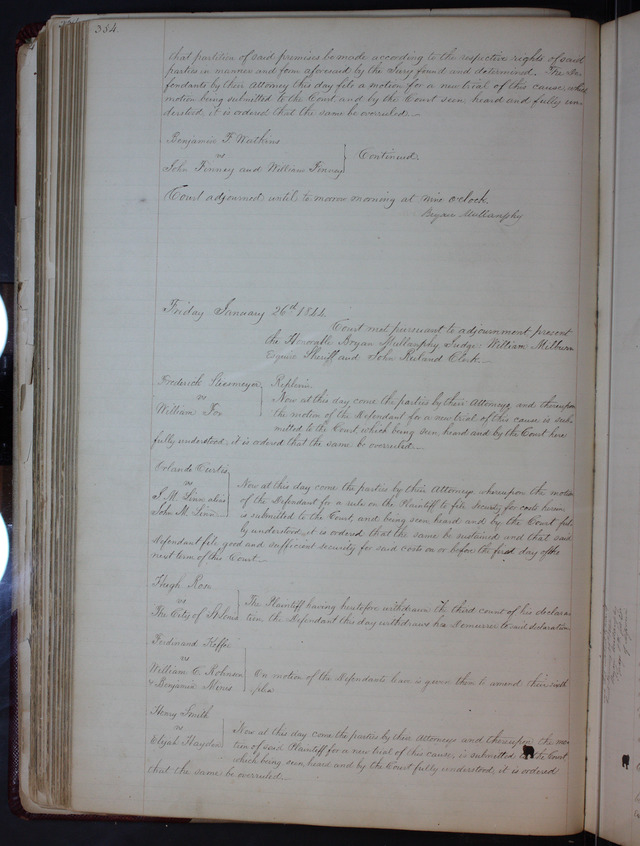 354.
that partition of said premises be made according to the respective rights of said
parties in manner and form aforesaid by the Jury found and determined. The De
fendants by their Attorney this day file a motion for a new trial of this cause, which
motion being submitted to the Court and by the Court seen, heard and fully un
derstood it is ordered that the same be overruled.
Benjamin F Watkins
vs
John Finney and William Finney
Continued.
Court adjourned until to morrow morning at nine o'clock.
Bryan Mullanphy
Friday January 26th 1844.
Court met pursuant to adjournment present
the Honorable Bryan Mullanphy Judge, William Milburn
Esquire Sheriff and John Ruland Clerk.
Frederick
vs
William Fox
Replevin.
Now at this day come the parties by their Attorneys, and thereupon
the motion of the Defendant for a new trial of this cause is sub
mitted to the Court which being seen, heard and by the Court here
fully understood, it is ordered that the same be overruled.
Orlando Curtis
vs
J. M. Linn alias
John M. Linn
Now at this day come the parties by their Attorneys, whereupon the motion
of the Defendant for a rule on the Plaintiff to file Security for costs herein
is submitted to the Court, and being seen heard and by the Court ful
ly understood, it is ordered that the same be sustained and that said
defendant file good and sufficient security for said costs on or before the first day of the
next term of this Court.
Hugh Rose
vs
The City of St Louis
The Plaintiff having heretofore withdrawn the third count of his declara
tion the Defendant this day withdraws his Demurrer to said declaration
Ferdinand
vs
William C. Robinson
& Benjamin
On motion of the Defendants leave is given them to amend their sixth
plea
Henry Smith
vs
Elijah Hayden
Now at this day come the parties by their Attorneys and thereupon the mo
tion of said Plaintiff for a new trial of this cause, is submitted to the Court,
which being seen, heard and by the Court fully understood, it is ordered
that the same be overruled.